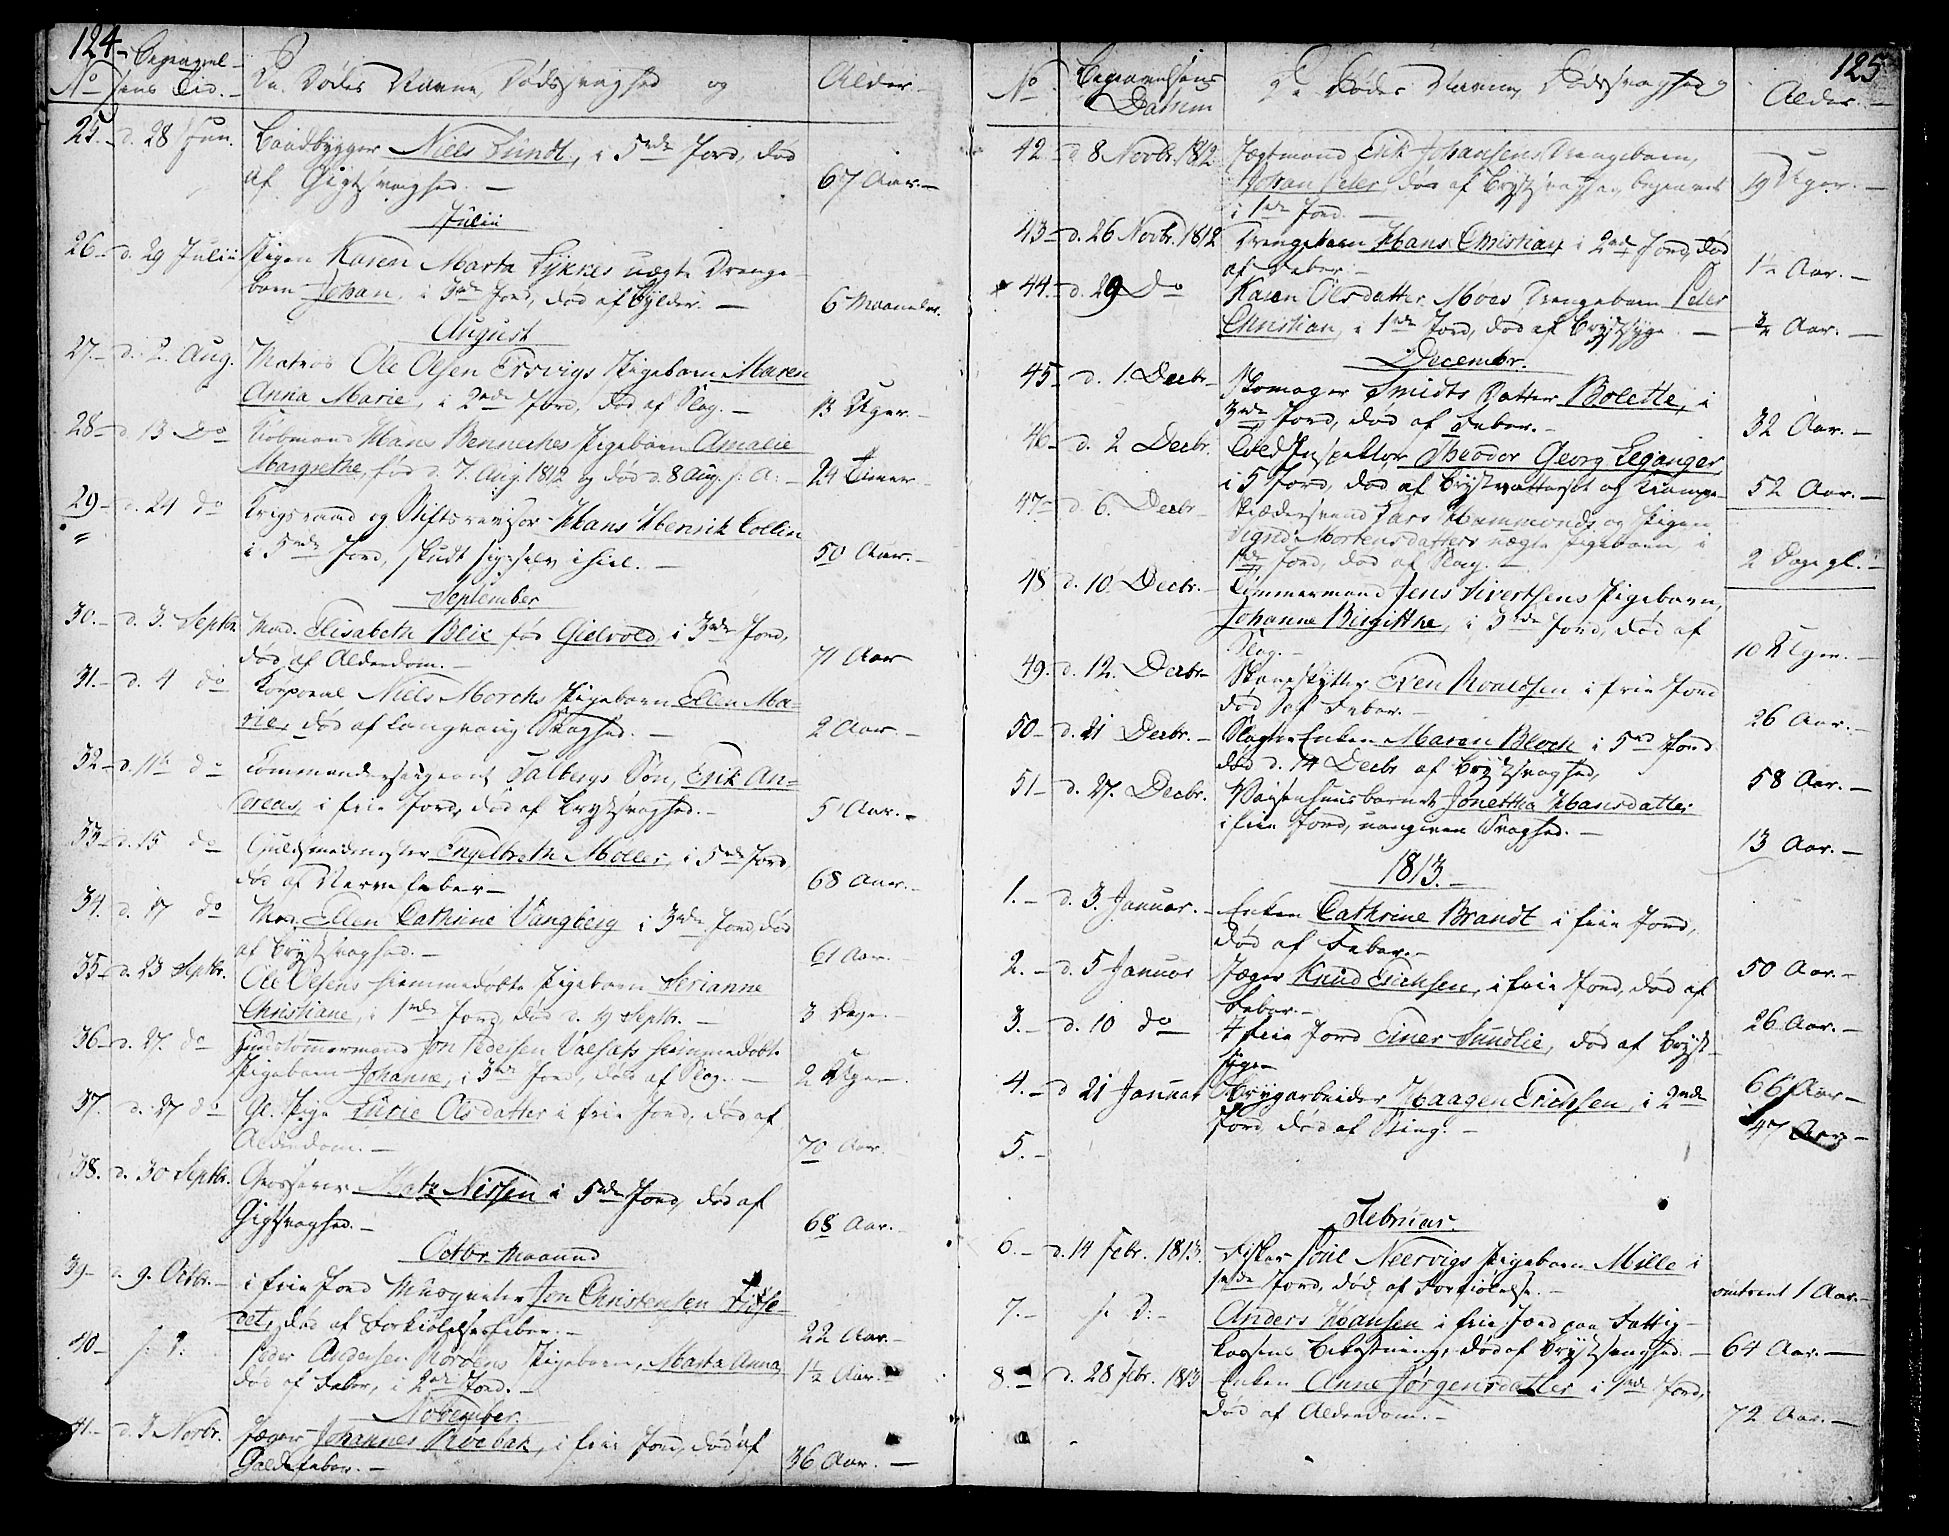 124.
No
Begravel-
sens Tid.
De Dødes Navne, Dødssvaghed og
Alder.
25. d. 28 Jun. Baadbygger Niels Lundt, i 5te Jord, død
af Gigtsvaghed. 67 Aar.
Julii
26. d. 29 Julii Pigen Karen Marta Lykkes uægte Drenge-
barn Johan, i 3die Jord, død af Bylder. 6 Maaneder.
August
27. d. 2. Aug. Matros Ole Olsen Ersvigs Pigebarn Maren
Anna Marie, i 2den Jord, død af Slag. 13 Uger.
28. d. 13 Do Kiøbmand Hans Benneches Pigebarn Amalie
Margrethe, fød d. 7. Aug. 1812 og død d. 8 Aug. s. A. 24 Timer
29. d. 24 do Krigsraad og Stiftsrevisor Hans Henrik Collin
i 5te Jord, skudt sig selv ihiel. 50 Aar.
September
30. d. 3. Septbr. Mad. Elisabeth Blix fød Gielvold, i 3die Jord,
død af Alderdom. 71 Aar
31. d. 4 do Korporal Niels Morchs Pigebarn Ellen Ma-
rie, død af langvarig Svaghed. 2 Aar.
32. d. 11te do Commandersergeant Talbergs Søn, Erik An-
dreas, i frie Jord, død af Brystsvaghed. 5 Aar.
33. d. 15 do Guldsmedmester Engelbreth Møller, i 5te Jord
død af Nervefeber 68 Aar.
34. d. 17 do Mad. Ellen Cathrine Vangberg i 3die Jord, død
af Brystsvaghed. 61 Aar.
35. d. 23 Septbr. Ole Olsens hiemmedøbte Pigebarn Serianne
Christiane, i 1ste Jord, død d. 19 Septbr. 3 Dage
36. d. 27. do Huustømmermand Jon Pedersen Valsets hiemmedøbte
Pigebarn Johanne, i 3die Jord, død af Slag. 2 Uger.
37. d. 27 do Gl. Pige Lucie Olsdatter i frie Jord, død af
Alderdom. 70 Aar.
38. d. 30 Septbr. Grosserer Matz Nissen i 5te Jord, død af
Gigtsvaghed. 68 Aar.
Octbr. Maaned
39. d. 9. Octbr. i frie Jord Musqueteer Jon Christensen
død af Forkiølelsesfeber. 22 Aar.
40. s. D. Peder Andersen Pigebarn, Marta Anna,
død af Feber, i 2den Jord. 1½ Aar.
November.
41. d. 3 Novbr. Jæger Johannes Roebak, i frie Jord, død af
Galdefeber. 36 Aar.
125
No
Begravelsens
Datum
De Dødes Navne, Dødssvaghed og
Alder.
42 d. 8 Novbr. 1812 Jægtmand Erik Johansens Drengebarn,
Johan Peter, død af Brystsvaghed, begravet
i 1ste Jord. 19 Uger.
43. d. 26 Novbr. 1812 Drengebarn Hans Christian, i 2den Jord, død
af Feber. 1½ Aar.
44. d. 29 Do Karen Olsdatter Moes Drengebarn Peter
Christian, i 1ste Jord, død af Brystsyge. ¾ Aar.
Decembr.
45. d. 1. Decbr. Skomager Smidts Datter Bolette, i
3die Jord, død af Feber. 32 Aar.
46. d. 2 Decbr. Inspektør Theodor Georg Leganger
i 5 Jord, død af Brystvattersot og Krampe 52 Aar.
47. d. 6. Decbr. Skrædersvend Lars Hammonds og Pigen
Sigrid Mortensdatters uægte Pigebarn, i
1ste Jord, død af Slag. 2 Dage gl.
48 d. 10 Decbr. Tømmermand Jens Sivertsens Pigebarn,
Johanne Birgitthe, i 3die Jord, død af
Slag. 10 Uger.
49. d. 12. Decbr. Skarpskytter Even Roaldsen i frie Jord
død af Feber. 26 Aar.
50. d. 21 Decbr. Slagter Enken Maren Bloch i 5te Jord
død d. 14 Decbr. af Brystsvaghed, 58 Aar.
51. d. 27. Decbr. Vaisenhuusbarnet Jonettha Hansdatter
i frie Jord, uangiven Svaghed. 13 Aar.
1813.
1. d. 3. Januar. Enken Cathrine Brandt i frie Jord,
død af Feber. 50 Aar.
2. d. 5 Januar Jæger Knud Erichsen, i frie Jord, død af
Feber. 26 Aar.
3. d. 10 do I frie Jord Einer Sundlie, død af Bryst-
syge 66 Aar
4. d. 21 Januar Brygarbeider Haagen Erichsen, i 2den
Jord, død af Sting. 47 Aar
5.
Februar.
6. d. 14 Febr. 1813. Fisker Poul Neervigs Pigebarn Mille i
1ste Jord, død af Forkiølelse. omtrent 1 Aar.
7. s. D. Anders Hansen i frie Jord paa Fattig-
kassens Bekostning, død af Brystsvaghed. 64 Aar.
8. d. 28 Febr. 1813 Enken Anne Jørgensdatter i 1ste Jord,
død af Alderdom. 72 Aar.